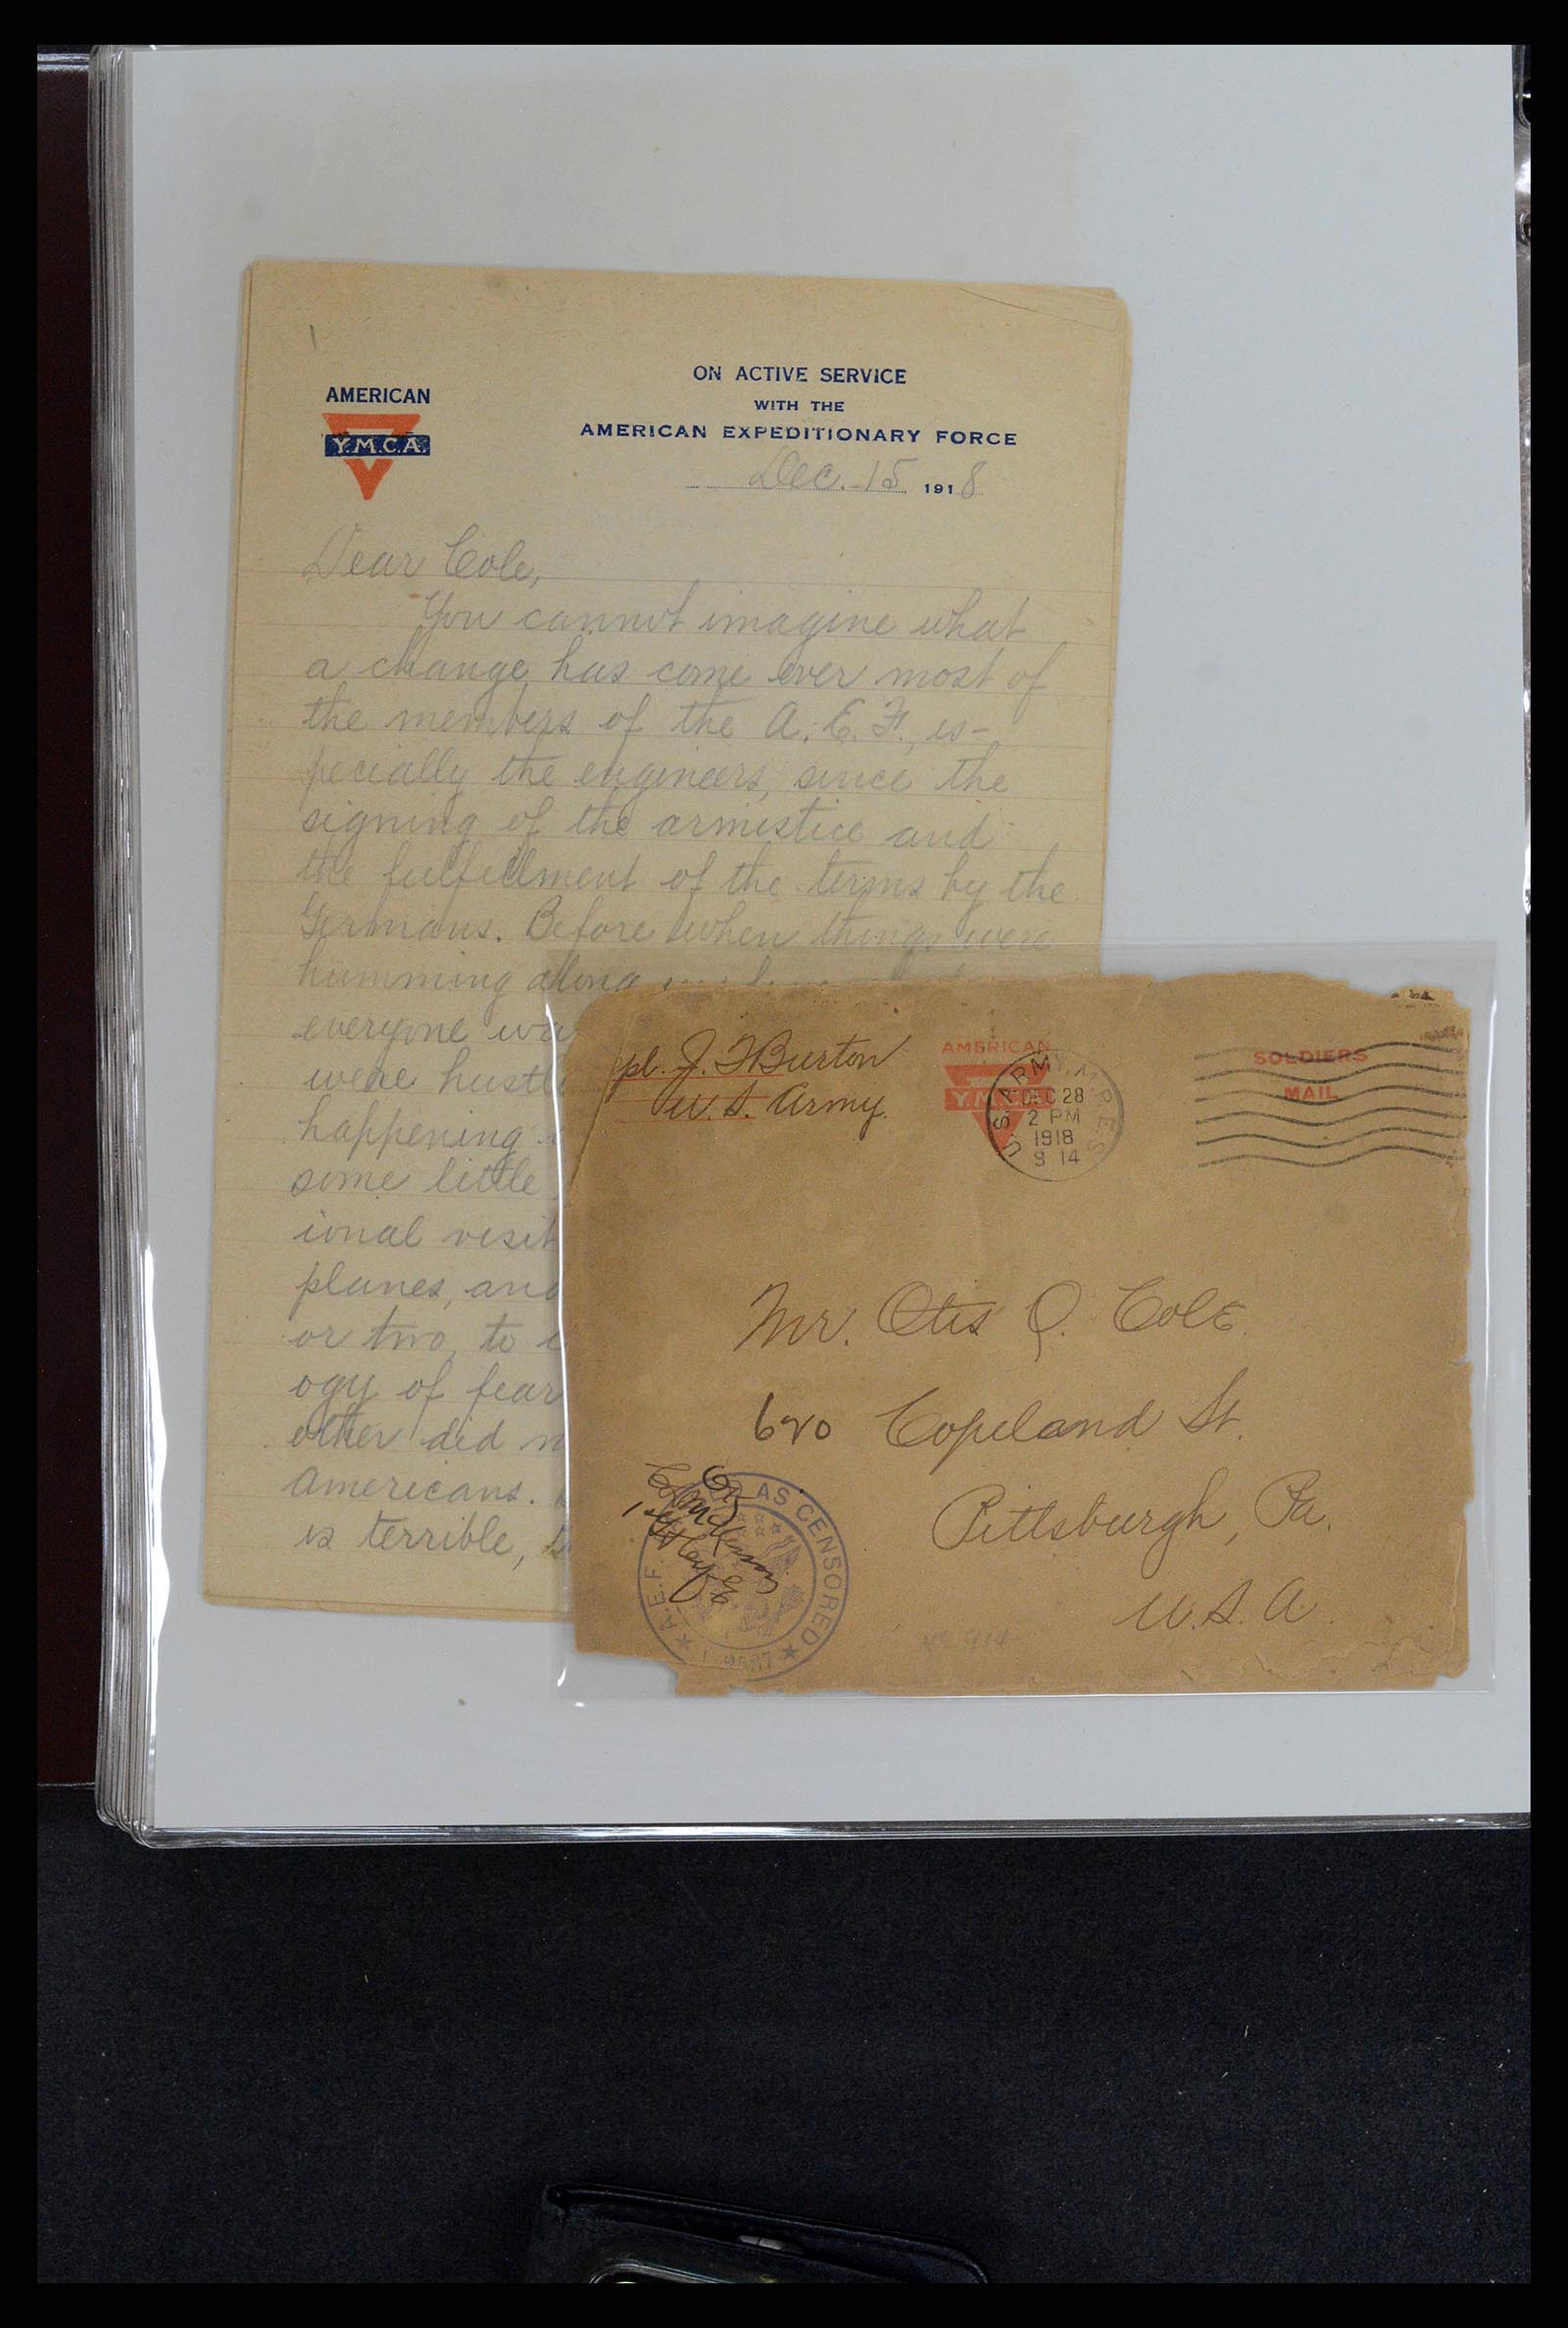 1
AMERICAN
Y.M.C.A.
ON ACTIVE SERVICE
WITH THE
AMERICAN EXPEDITIONARY FORCE
Dec. 15 1918
Dear Cole,
You cannot imagine what
a change has come over most of
the members of the A.E.F., es-
pecially the engineers, since the
signing of the armistice and
the fulfillment of the terms by the
Germans. Before when things were
humming along
everyone
were hustl
happening
some little
ional visit
planes, and
or two, to
ogy of fear
other did
Americans.
is terrible,
pl. J. F Burton
U.S. Army.
AMERICAN
Y.M.C.A.
U.S. ARMY M.P.E.S.
DEC 28
2 PM
1918
914
SOLDIERS
MAIL
Mr. Otis Q. Cole
620 Copeland St.
Pittsburgh, Pa.
U.S.A.
OK
1st Lt
A.E.F. PASSED AS CENSORED